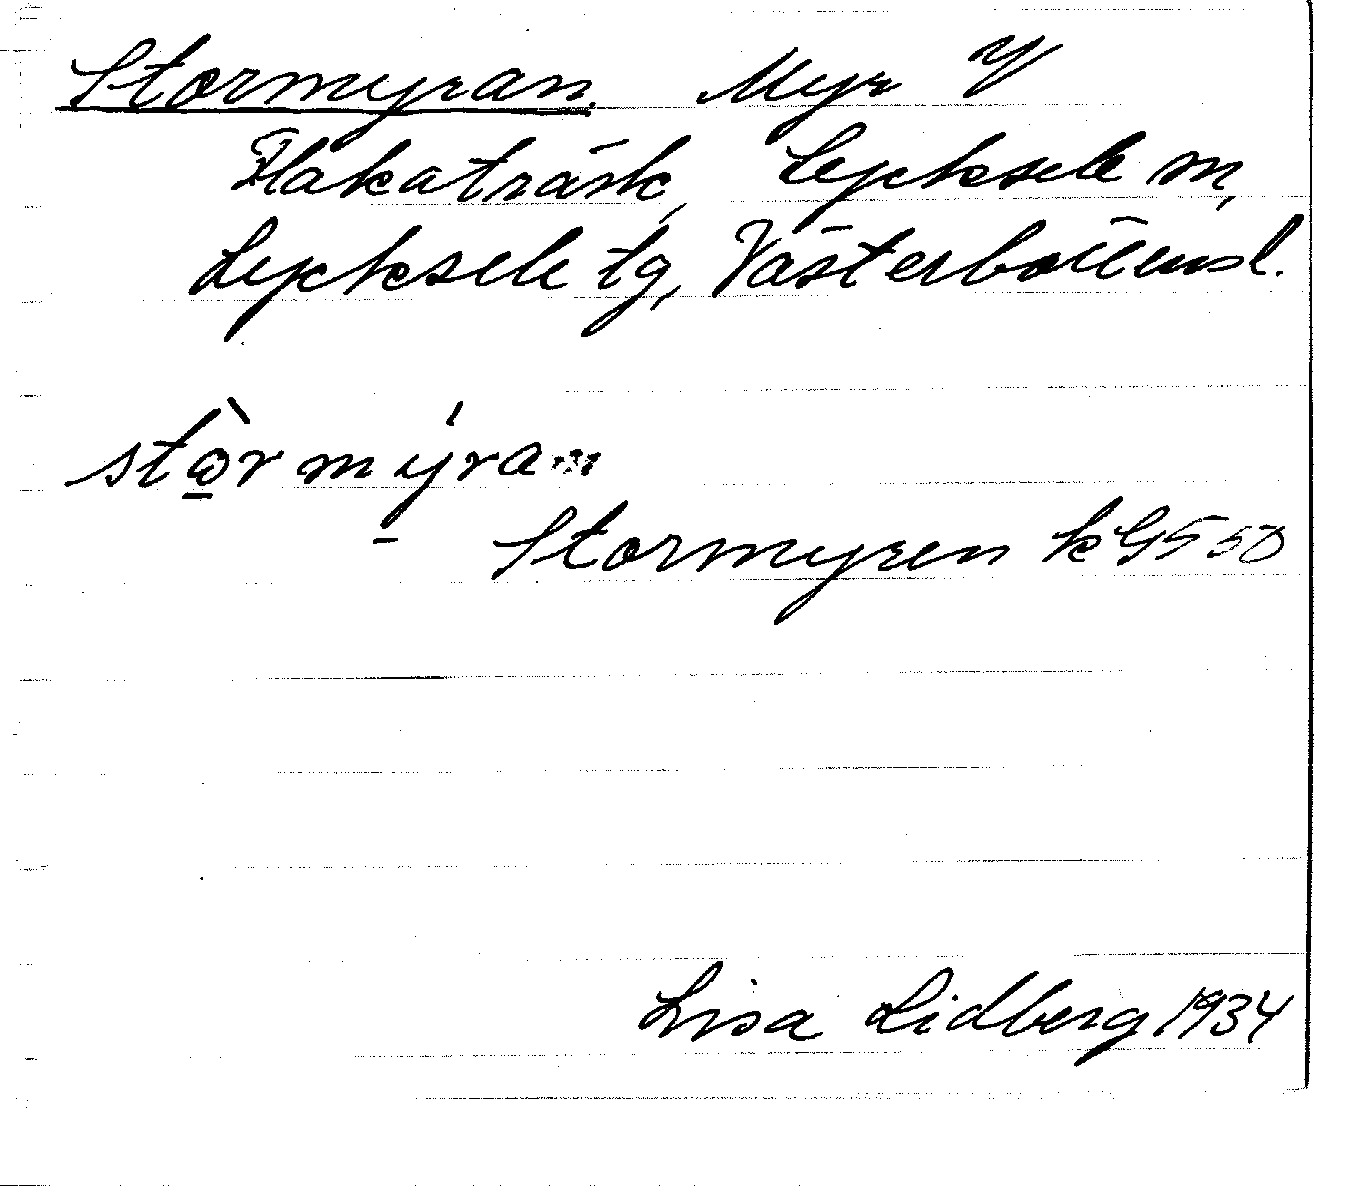 Stormyran. Myr
Flakaträsk, Lycksele m,
Lycksele tg, Västerbottensl.
stòrmýran
Stormyren k GS 50
Lisa Lidberg 1934